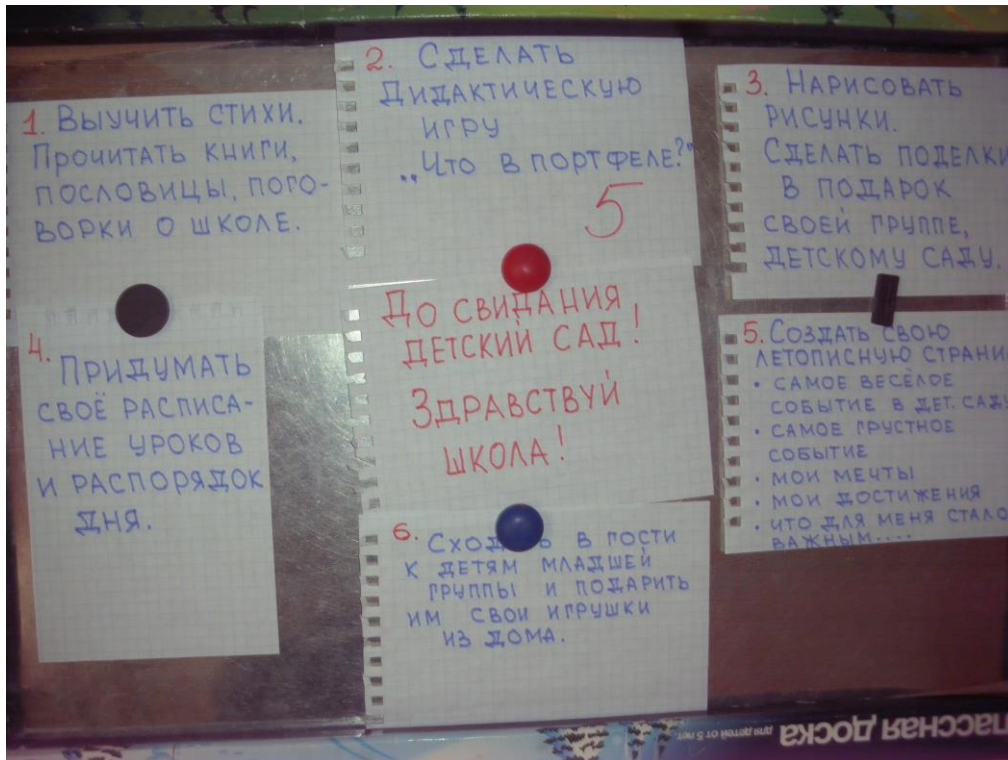 1. Выучить стихи.
Прочитать книги,
пословицы, пого-
ворки о школе.
2. Сделать
дидактическую
игру
„Что в портфеле?"
5
3. Нарисовать
рисунки.
Сделать поделки
в подарок
своей группе,
детскому саду.
4.
Придумать
своё расписа-
ние уроков
и распорядок
дня.
До свидания,
детский сад!
Здравствуй
школа!
5. Создать свою
летописную
• самое весёлое
событие в дет. саду
• самое грустное
событие
• мои мечты
• мои достижения
• что для меня стало
важным....
6.
в гости
к детям младшей
группы и подарить
им свои игрушки
из дома.
для детей от 5 лет
доска